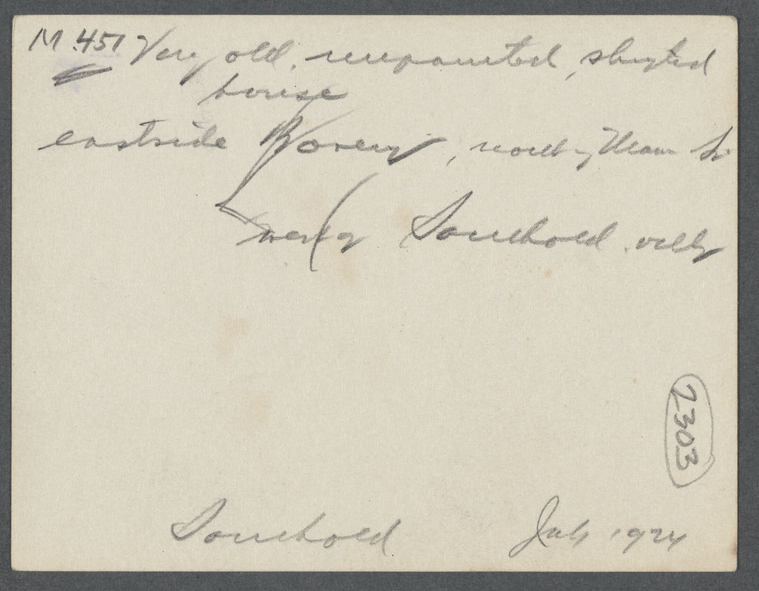 M.451 Very old, unpainted, shingled
house
eastside Bowery, north of Main St
west of Southold villg
2303
Southold July 1924